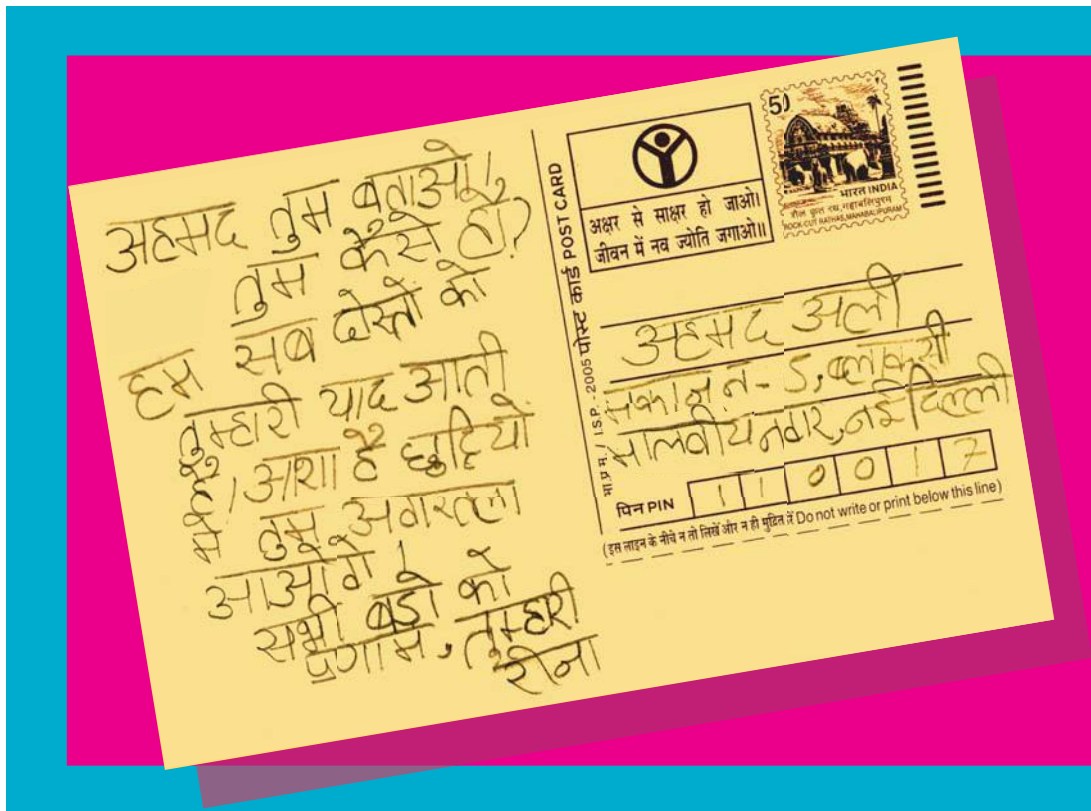 अहमद तुम बताओ,
तुम कैसे हो?
हम सब दोस्तों को
तुम्हारी याद आती
है। आशा है छुट्टियों
में तुम अगरतला
आओगे।
सभी बड़ो को
प्रणाम, तुम्हारी
रीना
भा.प्र.मु./ I.S.P. - 2005 पोस्ट कार्ड POST CARD
अक्षर से साक्षर हो जाओ।
जीवन में नव ज्योति जगाओ॥
50
भारत INDIA
शैल कृत रथ, महाबलिपुरम
ROCK-CUT RATHAS, MAHABALIPURAM
अहमद अली
मकान न- 5, ब्लाक सी
मालवीय नगर, नई दिल्ली
पिन PIN 110017
(इस लाइन के नीचे न तो लिखें और न ही मुद्रित करें Do not write or print below this line)